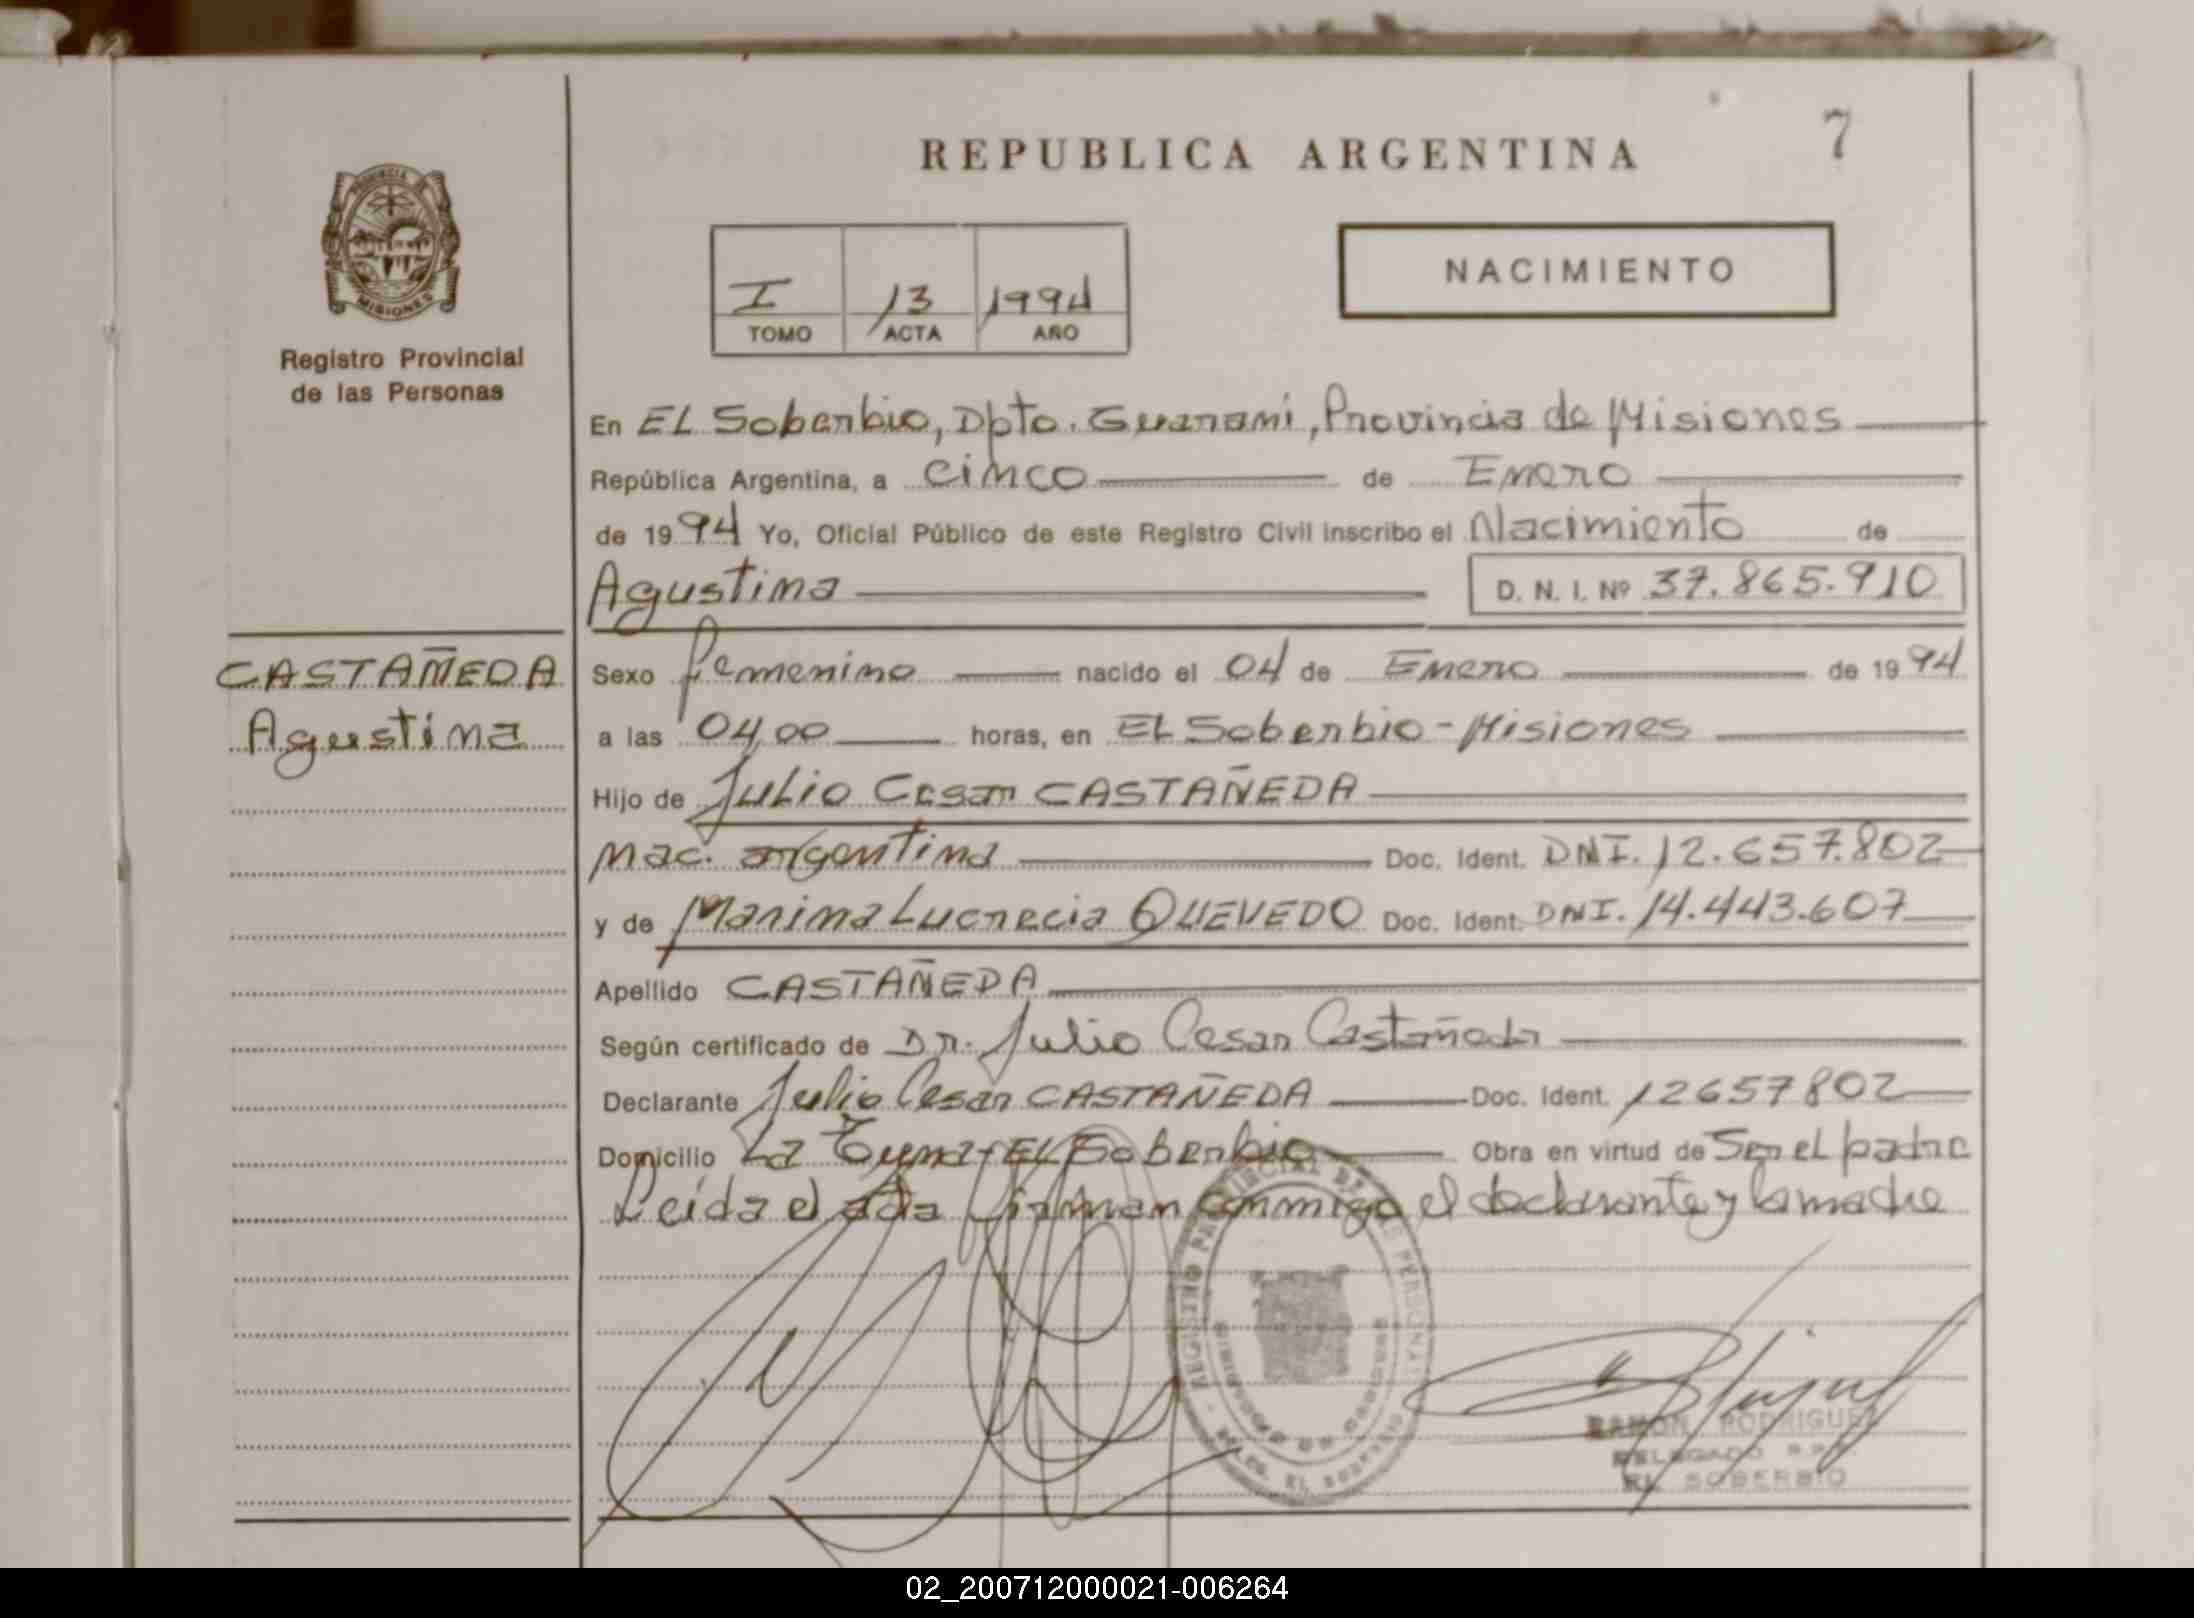 REPUBLICA ARGENTINA
7
PROVINCIA DE
MISIONES
Registro Provincial
de las Personas
I 13 1994
TOMO ACTA AÑO
NACIMIENTO
En EL Soberbio, Dpto. Guarani, Provincia de Misiones
República Argentina, a cinco de Enero
de 1994 Yo, Oficial Público de este Registro Civil inscribo el Nacimiento de
Agustina D. N. I. Nº 37.865.910
CASTAÑEDA
Agustina
Sexo femenino nacido el 04 de Enero de 1994
a las 04,00 horas, en EL Soberbio - Misiones
Hijo de Julio Cesar CASTAÑEDA
Nac. argentina Doc. Ident. DNI. 12.657.802
y de Marina Lucrecia QUEVEDO Doc. Ident. DNI. 14.443.607
Apellido CASTAÑEDA
Según certificado de Dr. Julio Cesar Castañeda
Declarante Julio Cesar CASTAÑEDA Doc. Ident. 12657802
Domicilio La Tuna - EL Soberbio Obra en virtud de Ser el padre
Leida el acta firman conmigo el declarante y la madre
REGISTRO PROVINCIAL DE LAS PERSONAS
EL SOBERBIO
RAMON RODRIGUEZ
DELEGADO R.P.P.
EL SOBERBIO
02_200712000021-006264